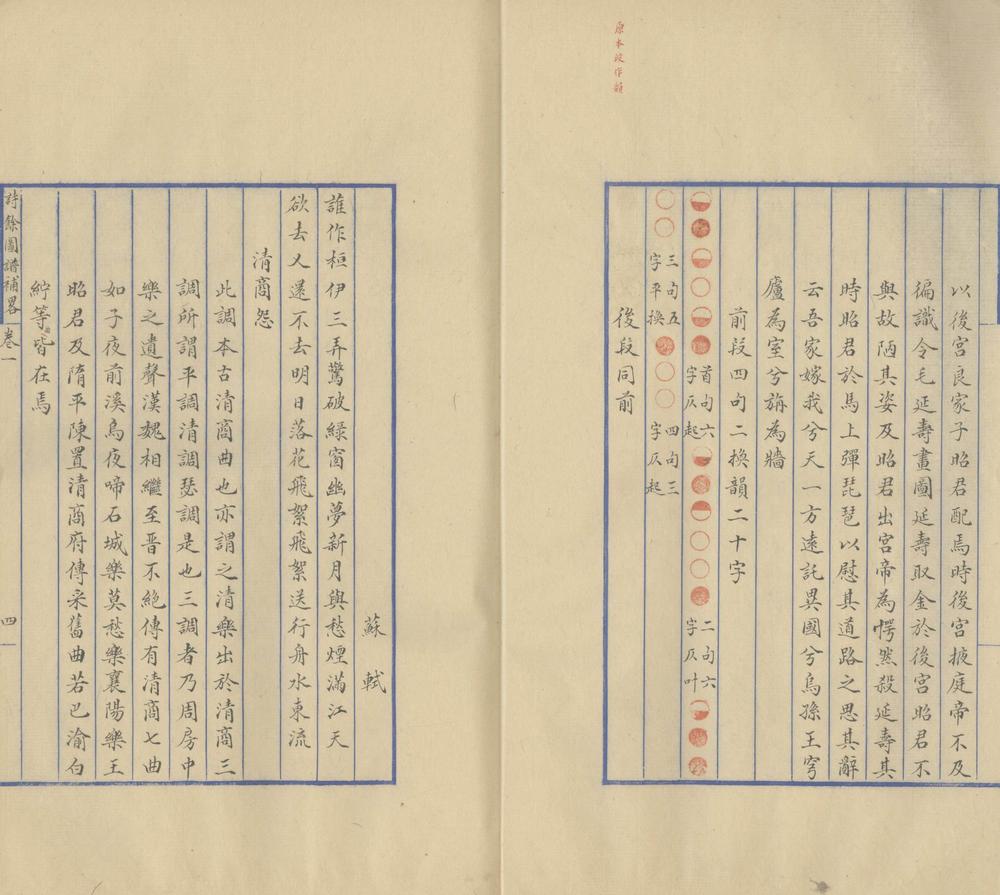 原本作韻
以後宮良家子昭君配焉時後宮掖庭帝不及
徧識令毛延壽畫圖延壽取金於後宮昭君不
與故陋其姿及昭君出宮帝為愕然殺延壽其
時昭君於馬上彈琵琶以慰其道路之思其辭
云吾家嫁我兮天一方遠託異國兮烏孫王穹
廬為室兮旃為牆
前段四句二換韻二十字
首句六字仄起 二句六字仄叶
三句五字平換 四句三字仄起
後段同前
蘇軾
誰作桓伊三弄驚破綠窗幽夢新月與愁煙滿江天
欲去又還不去明日落花飛絮飛絮送行舟水東流
清商怨
此調本古清商曲也亦謂之清樂出於清商三
調所謂平調清調瑟調是也三調者乃周房中
樂之遺聲漢魏相繼至晉不絕傳有清商七曲
如子夜前溪烏夜啼石城樂莫愁樂襄陽樂王
昭君及隋平陳置清商府傳采舊曲若巴渝白
紵等皆在焉
詩餘圖譜補畧 卷一 四